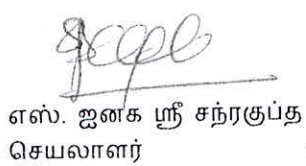 எஸ். ஐனக ஸ்ரீ சந்ரகுப்த
செயலாளர்